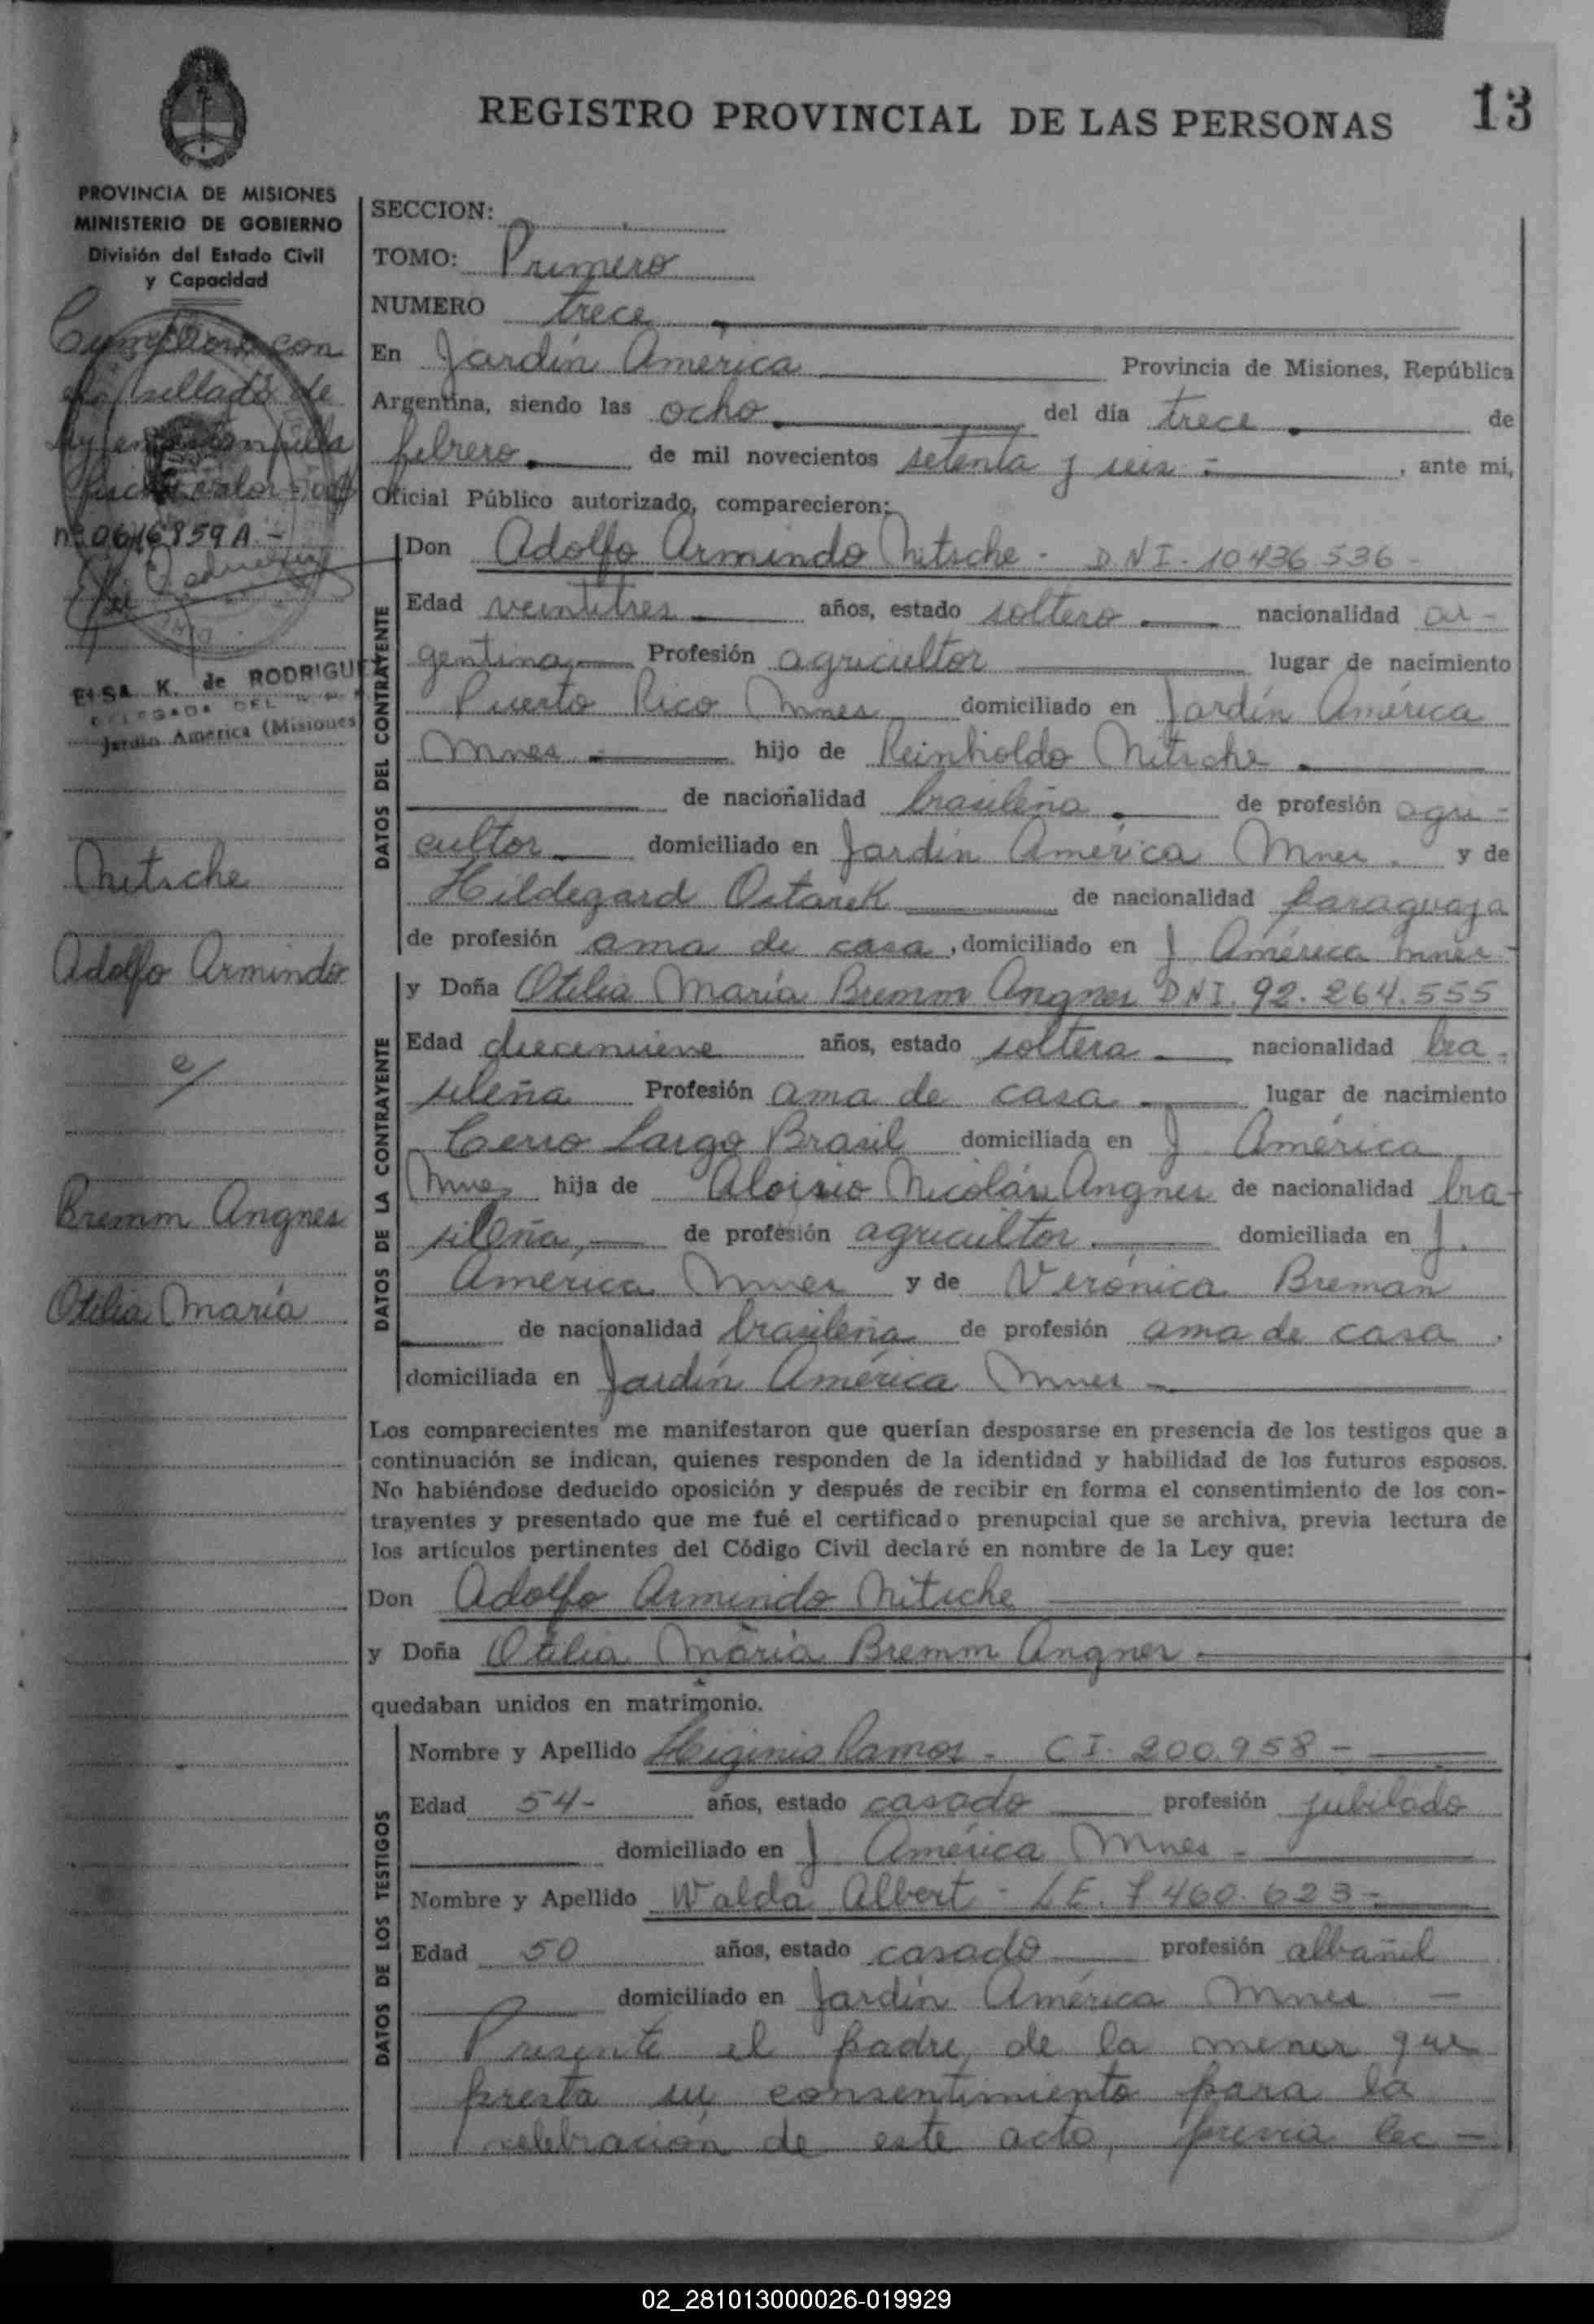 REGISTRO PROVINCIAL DE LAS PERSONAS
13
PROVINCIA DE MISIONES
MINISTERIO DE GOBIERNO
División del Estado Civil
y Capacidad
con
sellado de
valor
nº 0616859A.-
ELSA K. de RODRIGUE
DELEGADA DEL
Jardín América (Misiones
Nitsche
Adolfo Armindo
c/
Bremm Angnes
Otilia María
SECCION:
TOMO: Primero
NUMERO trece
En Jardín América Provincia de Misiones, República
Argentina, siendo las ocho del día trece de
febrero de mil novecientos setenta y seis - , ante mi,
Oficial Público autorizado, comparecieron:
DATOS DEL CONTRAYENTE
Don Adolfo Armindo Nitsche - DNI - 10436.536 -
Edad veintitres años, estado soltero nacionalidad ar-
gentina Profesión agricultor lugar de nacimiento
Puerto Rico Mnes domiciliado en Jardín América
Mnes hijo de Reinholdo Nitsche
de nacionalidad brasileña de profesión agri-
cultor domiciliado en Jardín América Mnes. y de
Hildegard de nacionalidad paraguaya
de profesión ama de casa, domiciliado en J América Mnes-
DATOS DE LA CONTRAYENTE
y Doña Otilia María Bremm Angnes DNI. 92.264.555
Edad diecenueve años, estado soltera nacionalidad bra-
sileña Profesión ama de casa lugar de nacimiento
Cerro Largo Brasil domiciliada en J América
Mnes hija de Aloisio Nicolás Angnes de nacionalidad bra-
sileña, de profesión agricultor domiciliada en J.
América Mnes y de Verónica Breman
de nacionalidad brasileña de profesión ama de casa.
domiciliada en Jardín América Mnes -
Los comparecientes me manifestaron que querían desposarse en presencia de los testigos que a
continuación se indican, quienes responden de la identidad y habilidad de los futuros esposos.
No habiéndose deducido oposición y después de recibir en forma el consentimiento de los con-
trayentes y presentado que me fué el certificado prenupcial que se archiva, previa lectura de
los artículos pertinentes del Código Civil declaré en nombre de la Ley que:
Don Adolfo Armindo Nitsche
y Doña Otilia María Bremm Angnes
quedaban unidos en matrimonio.
DATOS DE LOS TESTIGOS
Nombre y Apellido Higinio Ramos - CI. 200.958 -
Edad 54- años, estado casado profesión jubilado
domiciliado en J América Mnes -
Nombre y Apellido Waldo Albert - LE. 7460.623-
Edad 50 años, estado casado profesión albañil
domiciliado en Jardín América Mnes -
Presente el padre de la menor que
presta su consentimiento para la
celebración de este acto, previa lec-
02_281013000026-019929